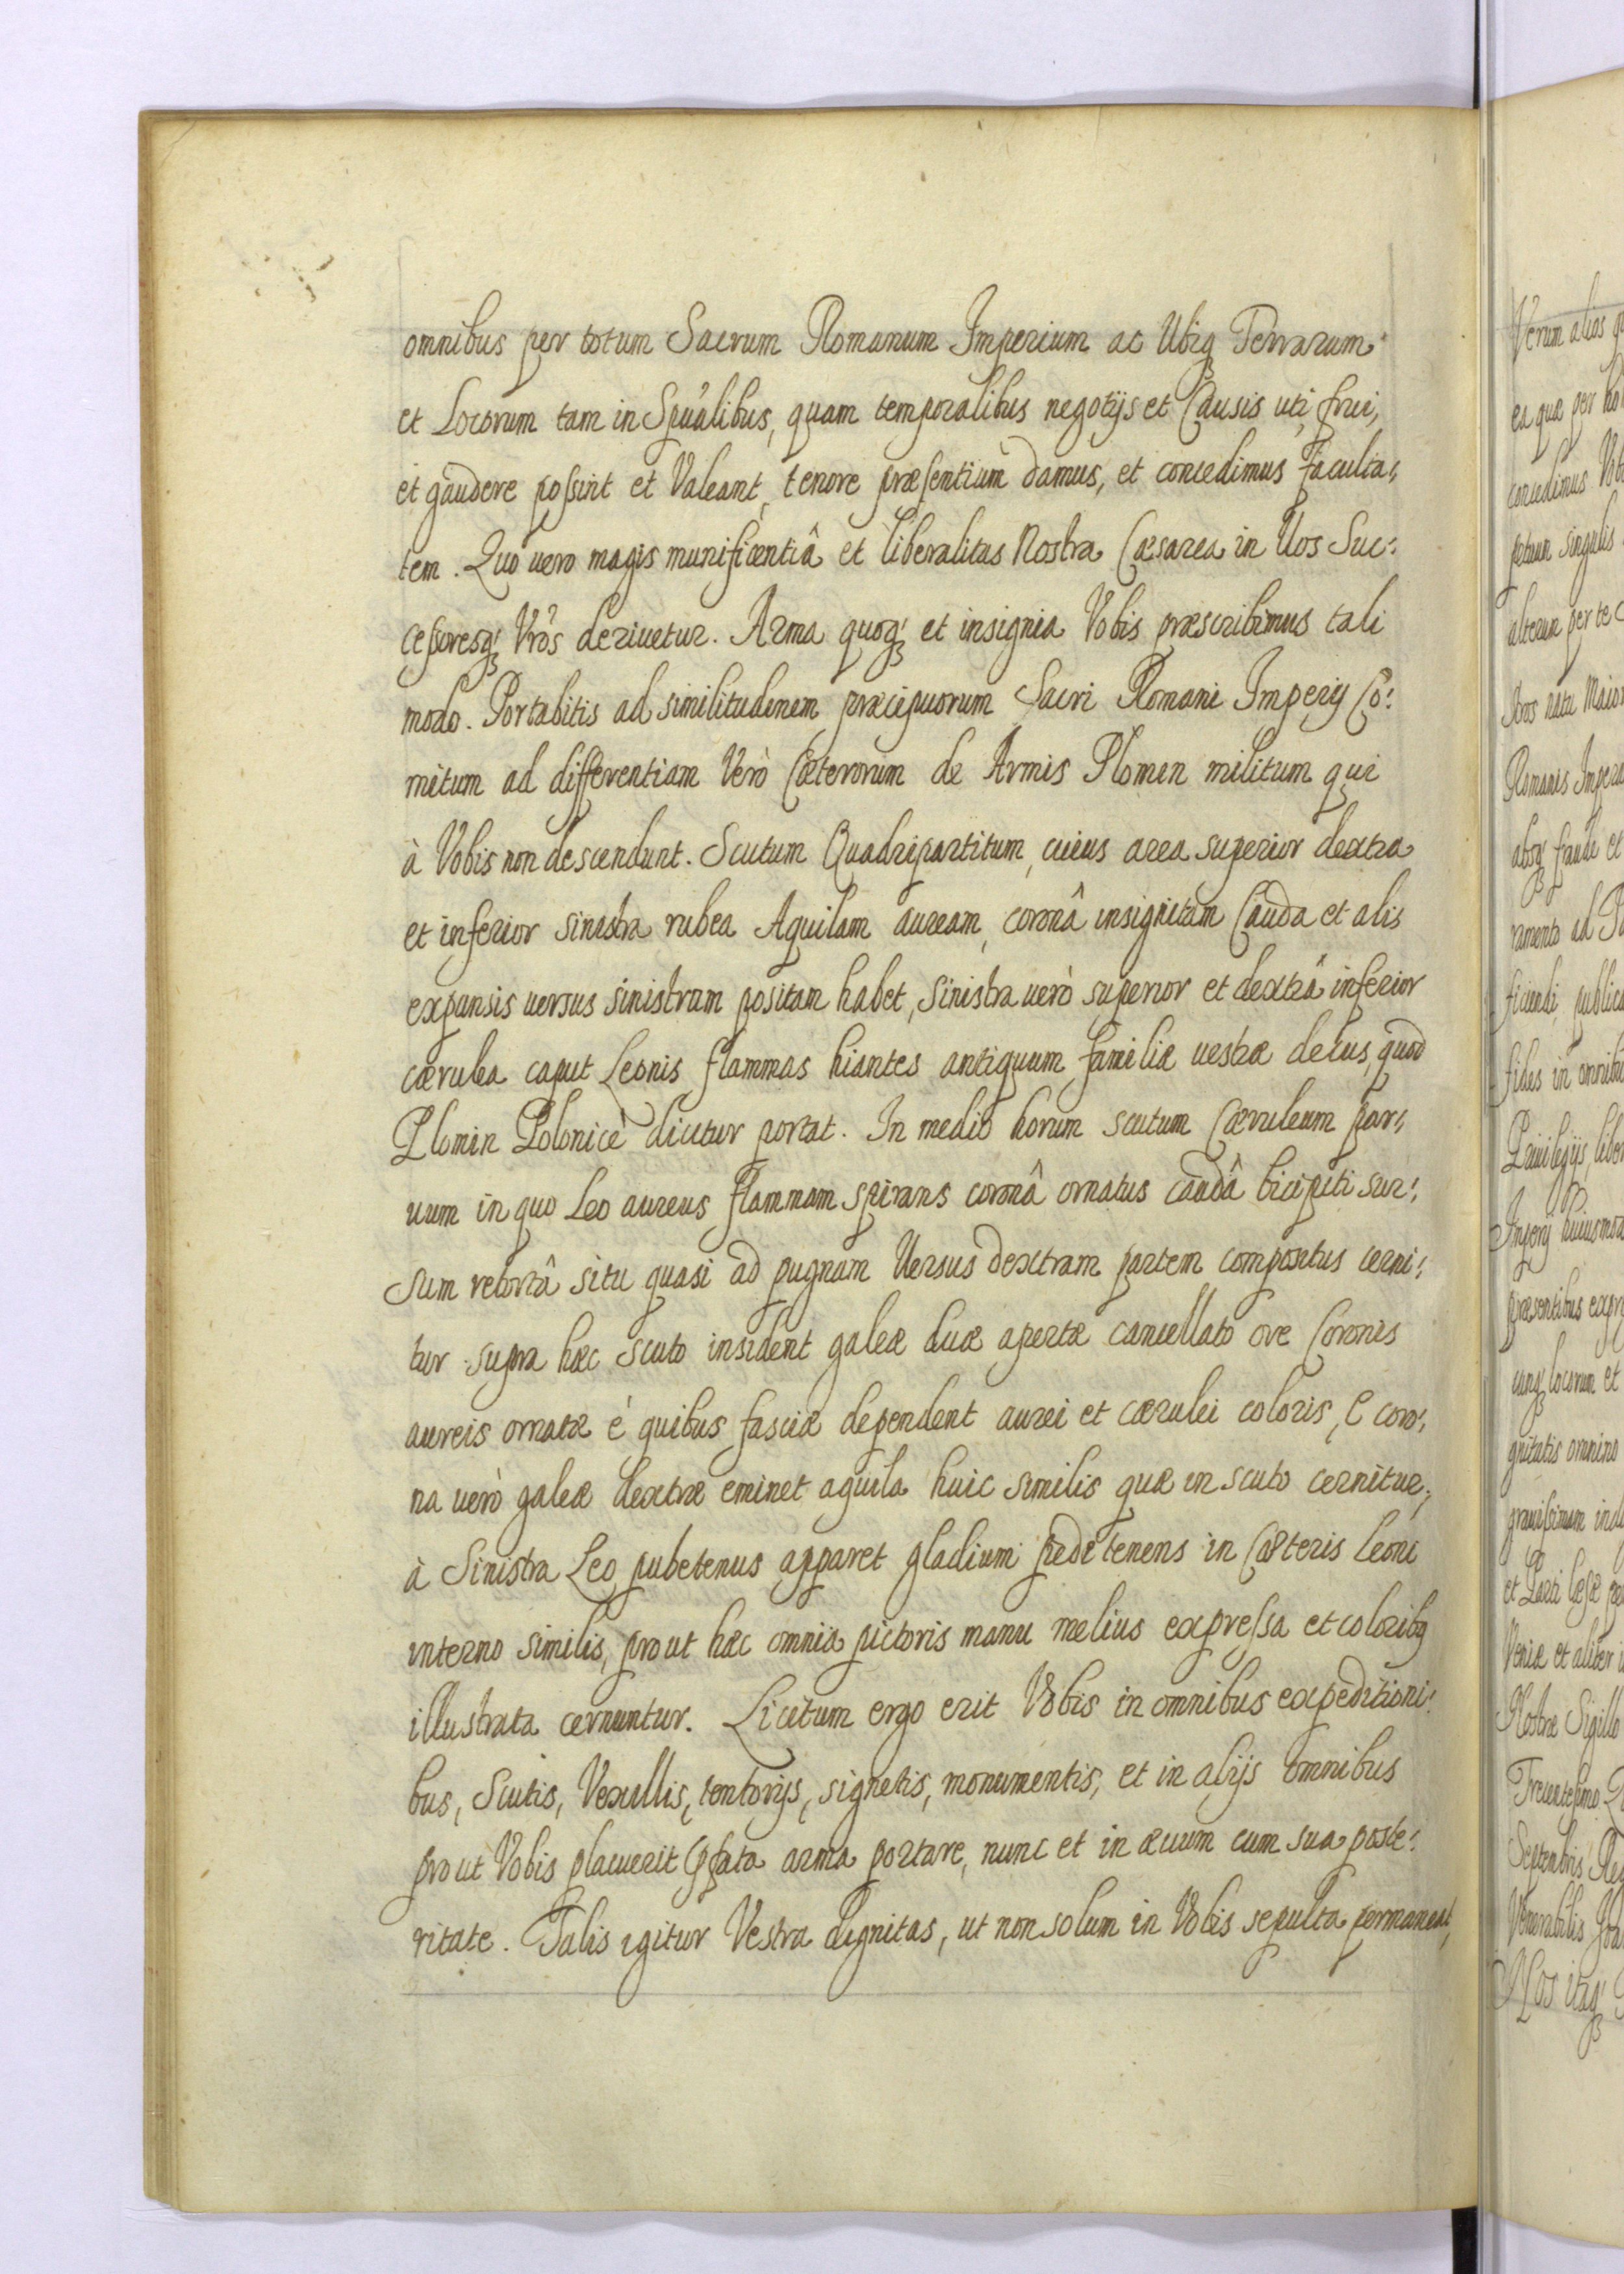 omnibus per totum Sacrum Romanum Imperium ac Ubiq́ Terrarum
et Locorum tam in Spũalibus, quam temporalibus negotijs et Causis uti, frui,
et gaudere poſsint et Valeant, tenore præſentium damus, et concedimus faculta-,
tem. Quo uero magis munificentiâ et liberalitas Nostra Cæsarea in Uos Suc-
ceſsoresq́ Vr̃os deriuetur. Arma quoq́ et insignia Vobis præscribimus tali
modo. Portabitis ad similitudinem præcipuorum Sacri Romani Imperij Co-
mitum ad differentiam Verò Cæterorum de Armis Plomin militum qui
à Vobis non descendunt. Scutum Quadripartitum, cuius area superior dextra
et inferior sinistra rubea Aquilam auream, coronâ insignitam Cauda et alis
expansis uersus sinistram positam habet, Sinistra uerò superior et dextra inferior
cærulea caput Leonis flammas hiantes antiquum familiæ uestræ decus, quod
Plomin Polonicè dicitur portat. In medio horum scutum Cæruleum par-,
uum in quo Leo aureus flammam spirans coronâ ornatus caudâ bicipiti sur-,
sum retortâ situ quasi ad pugnam Uersus dextram partem compositus cerni-,
tur supra hæc scuto insident galeæ duæ apertæ cancellato ore Coronis
aureis ornatæ é quibus fasciæ dependent aurei et cærulei coloris, E coro-,
na uerò galeæ dextræ eminet aquila huic similis quæ in scuto cernitur,
à Sinistra Leo pubetenus apparet gladium pede tenens in Cæteris Leoni
interno similis, prout hæc omnia pictoris manu melius expreſsa et coloribq
illustrata cernuntur. Licitum ergo erit Vobis in omnibus expeditioni-
bus, Scutis, Vexillis, tentorijs, signetis, monumentis, et in alijs omnibus
prout Vobis placuerit p̃fata arma portare, nunc et in æuum cum sua poste-
ritate. Talis igitur Vestra dignitas, ut non solum in Vobis sepulta permaneat,
Verum alios
ea quæ per
concedimus
singulis
alterum per te
natu Maior
Romanis
absq́ fraude et
ramento ad
ficiendi, publica
fides in omnibus
Priuilegijs,
Imperij huiusmodi
præsentibus
cunq́ locorum et
gnitatis omnino
grauiſsimam
et Parti læsæ
Veniæ et aliter
Nostræ Sigillo
Trecentesimo
Septembris
Venerabilis
Nos itaq́